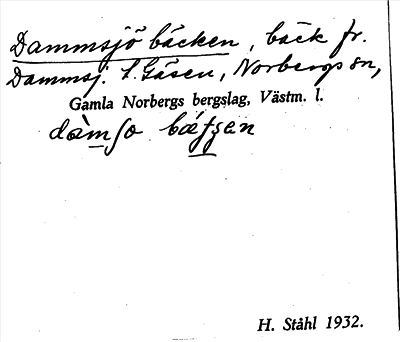 Dammsjöbäcken, bäck fr.
Dammsj. t. Gäsen, Norbergs sn,
Gamla Norbergs bergslag, Västm. l.
dàmʃo bǽʃʃen
H. Ståhl 1932.